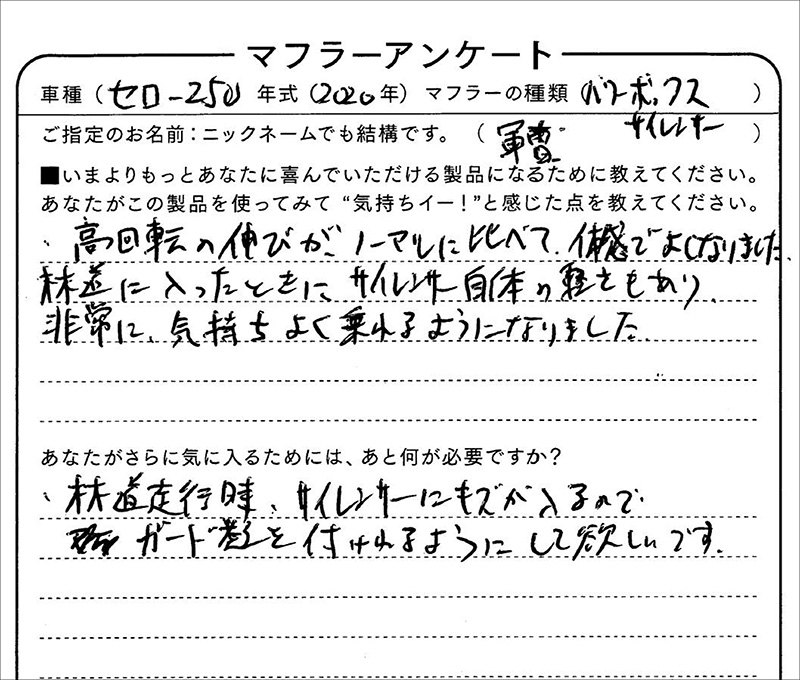 マフラーアンケート
車種（セロー250 年式（2020年）マフラーの種類（パワーボックス
サイレンサー ）
ご指定のお名前：ニックネームでも結構です。（ 軍曹 ）
■いまよりもっとあなたに喜んでいただける製品になるために教えてください。
あなたがこの製品を使ってみて“気持ちイー！”と感じた点を教えてください。
・高回転の伸びが、ノーマルに比べて、体感でよくなりました。
林道に入ったときに サイレンサー自体の軽さもあり、
非常に、気持ちよく乗れるようになりました。
あなたがさらに気に入るためには、あと何が必要ですか？
・林道走行時、サイレンサーにキズが入るので
ガード を付けれるようにして欲しいです。